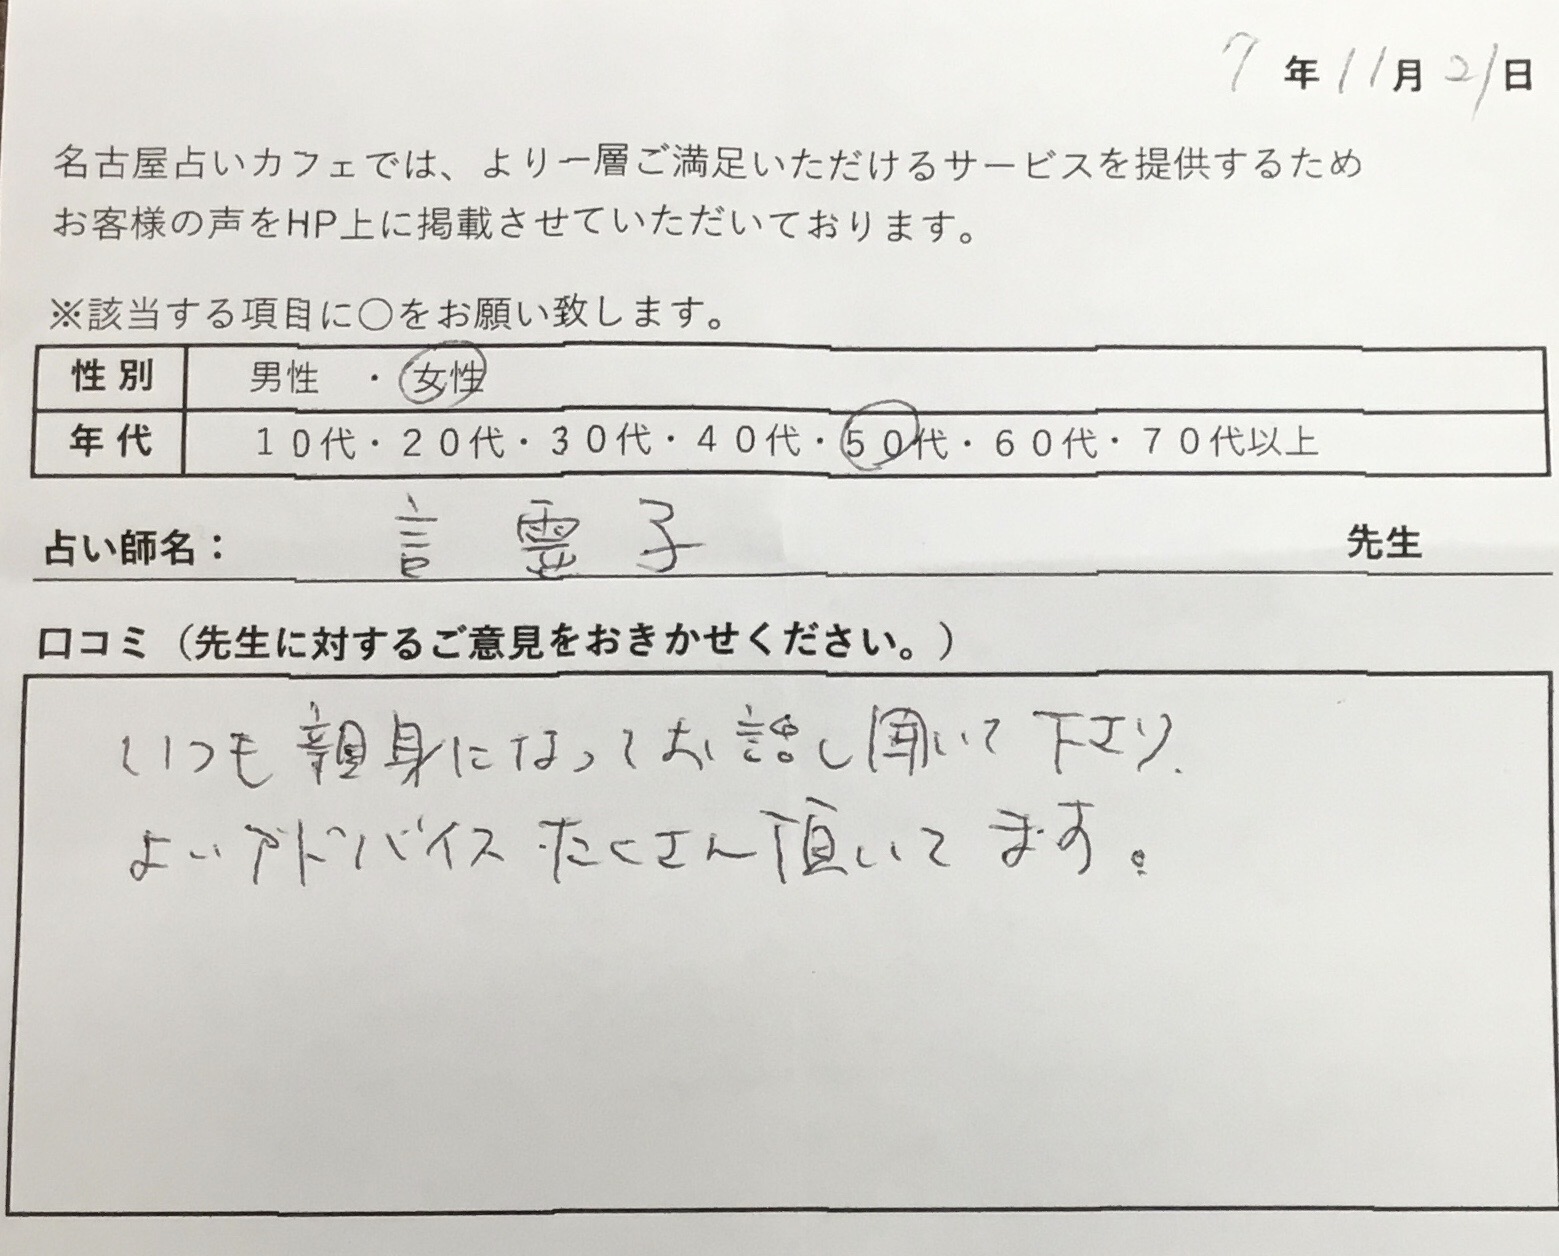 7年11月21日
名古屋占いカフェでは、より一層ご満足いただけるサービスを提供するため
お客様の声をHP上に掲載させていただいております。
※該当する項目に○をお願い致します。
性別 男性 ・ 女性
年代 10代・20代・30代・40代・50代・60代・70代以上
占い師名： 言霊子 先生
口コミ（先生に対するご意見をおきかせください。）
いつも親身になってお話し聞いて下さり、
よいアドバイスたくさん頂いてます。